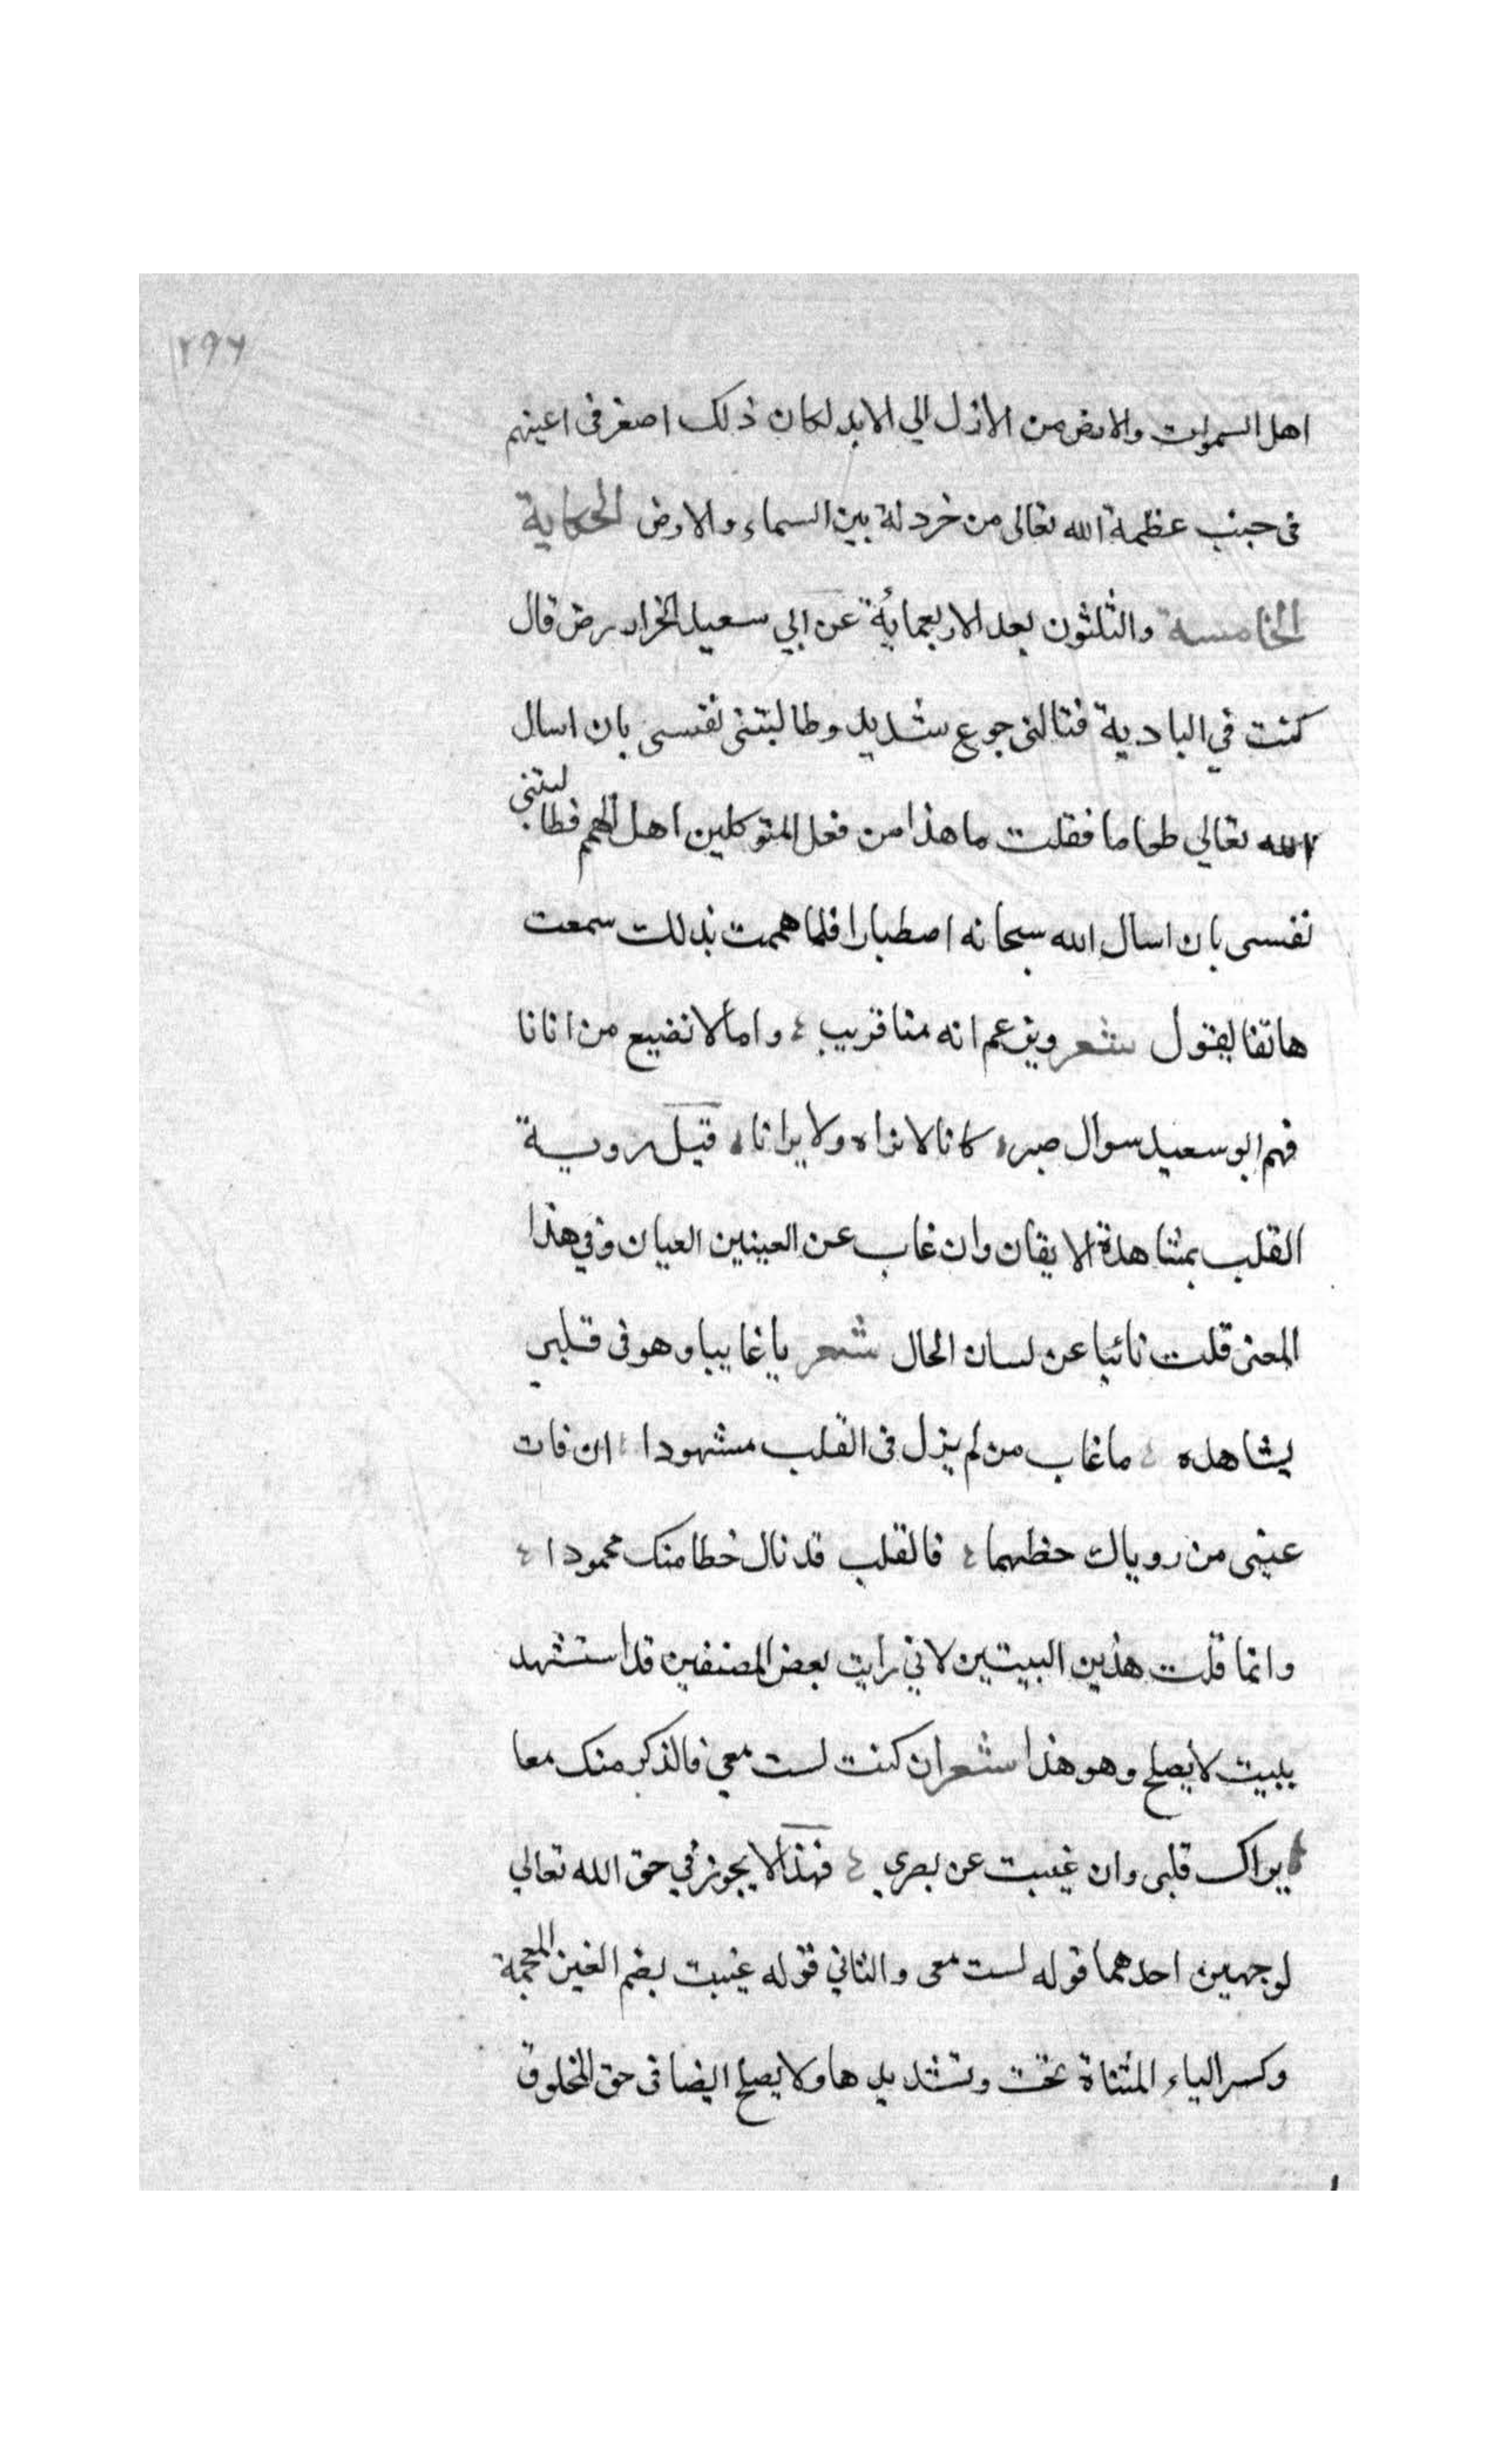 ٢٩٦
اهل السموات والارض من الازل الي الابد لكان ذلك اصغر فى اعينهم
فى جنب عظمة الله تعالى من خردلة بين السماء والارض الحكاية
الخامسة والثلثون بعد الاربعمائة عن ابي سعيد الخراز رض قال
كنت في البادية فنالنى جوع شديد وطالبتنى نفسى بان اسال
الله تعالي طعاما فقلت ما هذا من فعل المتوكلين اهل الهمم فطالبتنى
نفسى بان اسال الله سبحانه اصطبارا فلما هممت بذلك سمعت
هاتفا يقول شعر ويزعم انه منا قريب ؛ واما لا نضيع من اتانا
فهم ابو سعيد سوال صبر، كانا لا نراه ولا يرانا، قيل روية
القلب بمشاهدة الايقان وان غاب عن العينين العيان وفي هذا
المعنى قلت نائبا عن لسان الحال شعر يا غايبا وهو فى قلبي
يشاهده ؛ ما غاب من لم يزل فى القلب مشهودا ؛ ان فات
عينى من روياك حظهما ؛ فالقلب قد نال خطا منك محمودا ؛
وانما قلت هذين البيتين لاني رايت بعض المصنفين قد استشهد
ببيت لا يصلح وهو هذا شعر ان كنت لست معي فالذكر منك معا
يراك قلبى وان غيبت عن بصري ؛ فهذا لا يجوز في حق الله تعالي
لوجهين احدهما قوله لست معى والثاني قوله غيبت بضم الغين المعجمة
وكسر الياء المثناة تحت وتشديدها ولا يصلح ايضا فى حق المخلوق